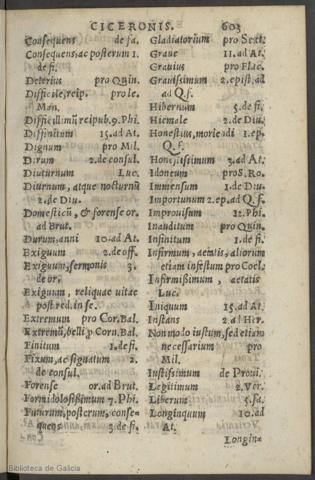 CICERONIS. 603
Consequens de fa.
Consequens, ac posterum 1.
de fi.
Deterius pro Quin.
Difficile, reip. pro le.
Man.
Difficillimũ reipub. 9. Phi.
Distinctum 15. ad At.
Dignum pro Mil.
Dirum 2. de consul.
Diuturnum Luc.
Diurnum, atque nocturnũ
2. de Diu.
Domesticũ, & forense or.
ad Brut.
Durum, anni 10. ad At.
Exiguum 2. de off.
Exiguum, sermonis 3.
de or.
Exiguum, reliquae uitae
post red. in se.
Extremum pro Cor. Bal.
Extremũ, belli, p Corn. Bal.
Finitum 1. de fi.
Fixum, ac signatum 2.
de consul.
Forense or. ad Brut.
Formidolosissimum 7. Phi.
Futurum, posterum, conse-
quens 3. de fi.
Gladiatorium pro Sext.
Graue 11. ad At.
Grauius pro Flac.
Grauissimum 2. epist. ad
ad Q. f.
Hibernum 5. de fi.
Hiemale 2. de Diu.
Honestius, morie di 1. ep.
Q. f.
Honestissimum 3. ad At.
Idoneum pro S. Ro.
Immensum 1. de Diu.
Importunum 2. ep. ad Q. f.
Improuisum 12. Phi.
Inauditum pro Quin.
Infinitum 1. de fi.
Infirmum, aetatis, aliorum
etiam infestum pro Coel.
Infirmissimum, aetatis
Luc.
Iniquum 15. ad At.
Instans 2. ad Her.
Non modo iustum, sed etiam
necessarium pro
Mil.
Iustissimum de Proui.
Legitimum 2. Ver.
Liberum 5. fa.
Longinquum 10. ad
At.
Longin-
Biblioteca de Galicia